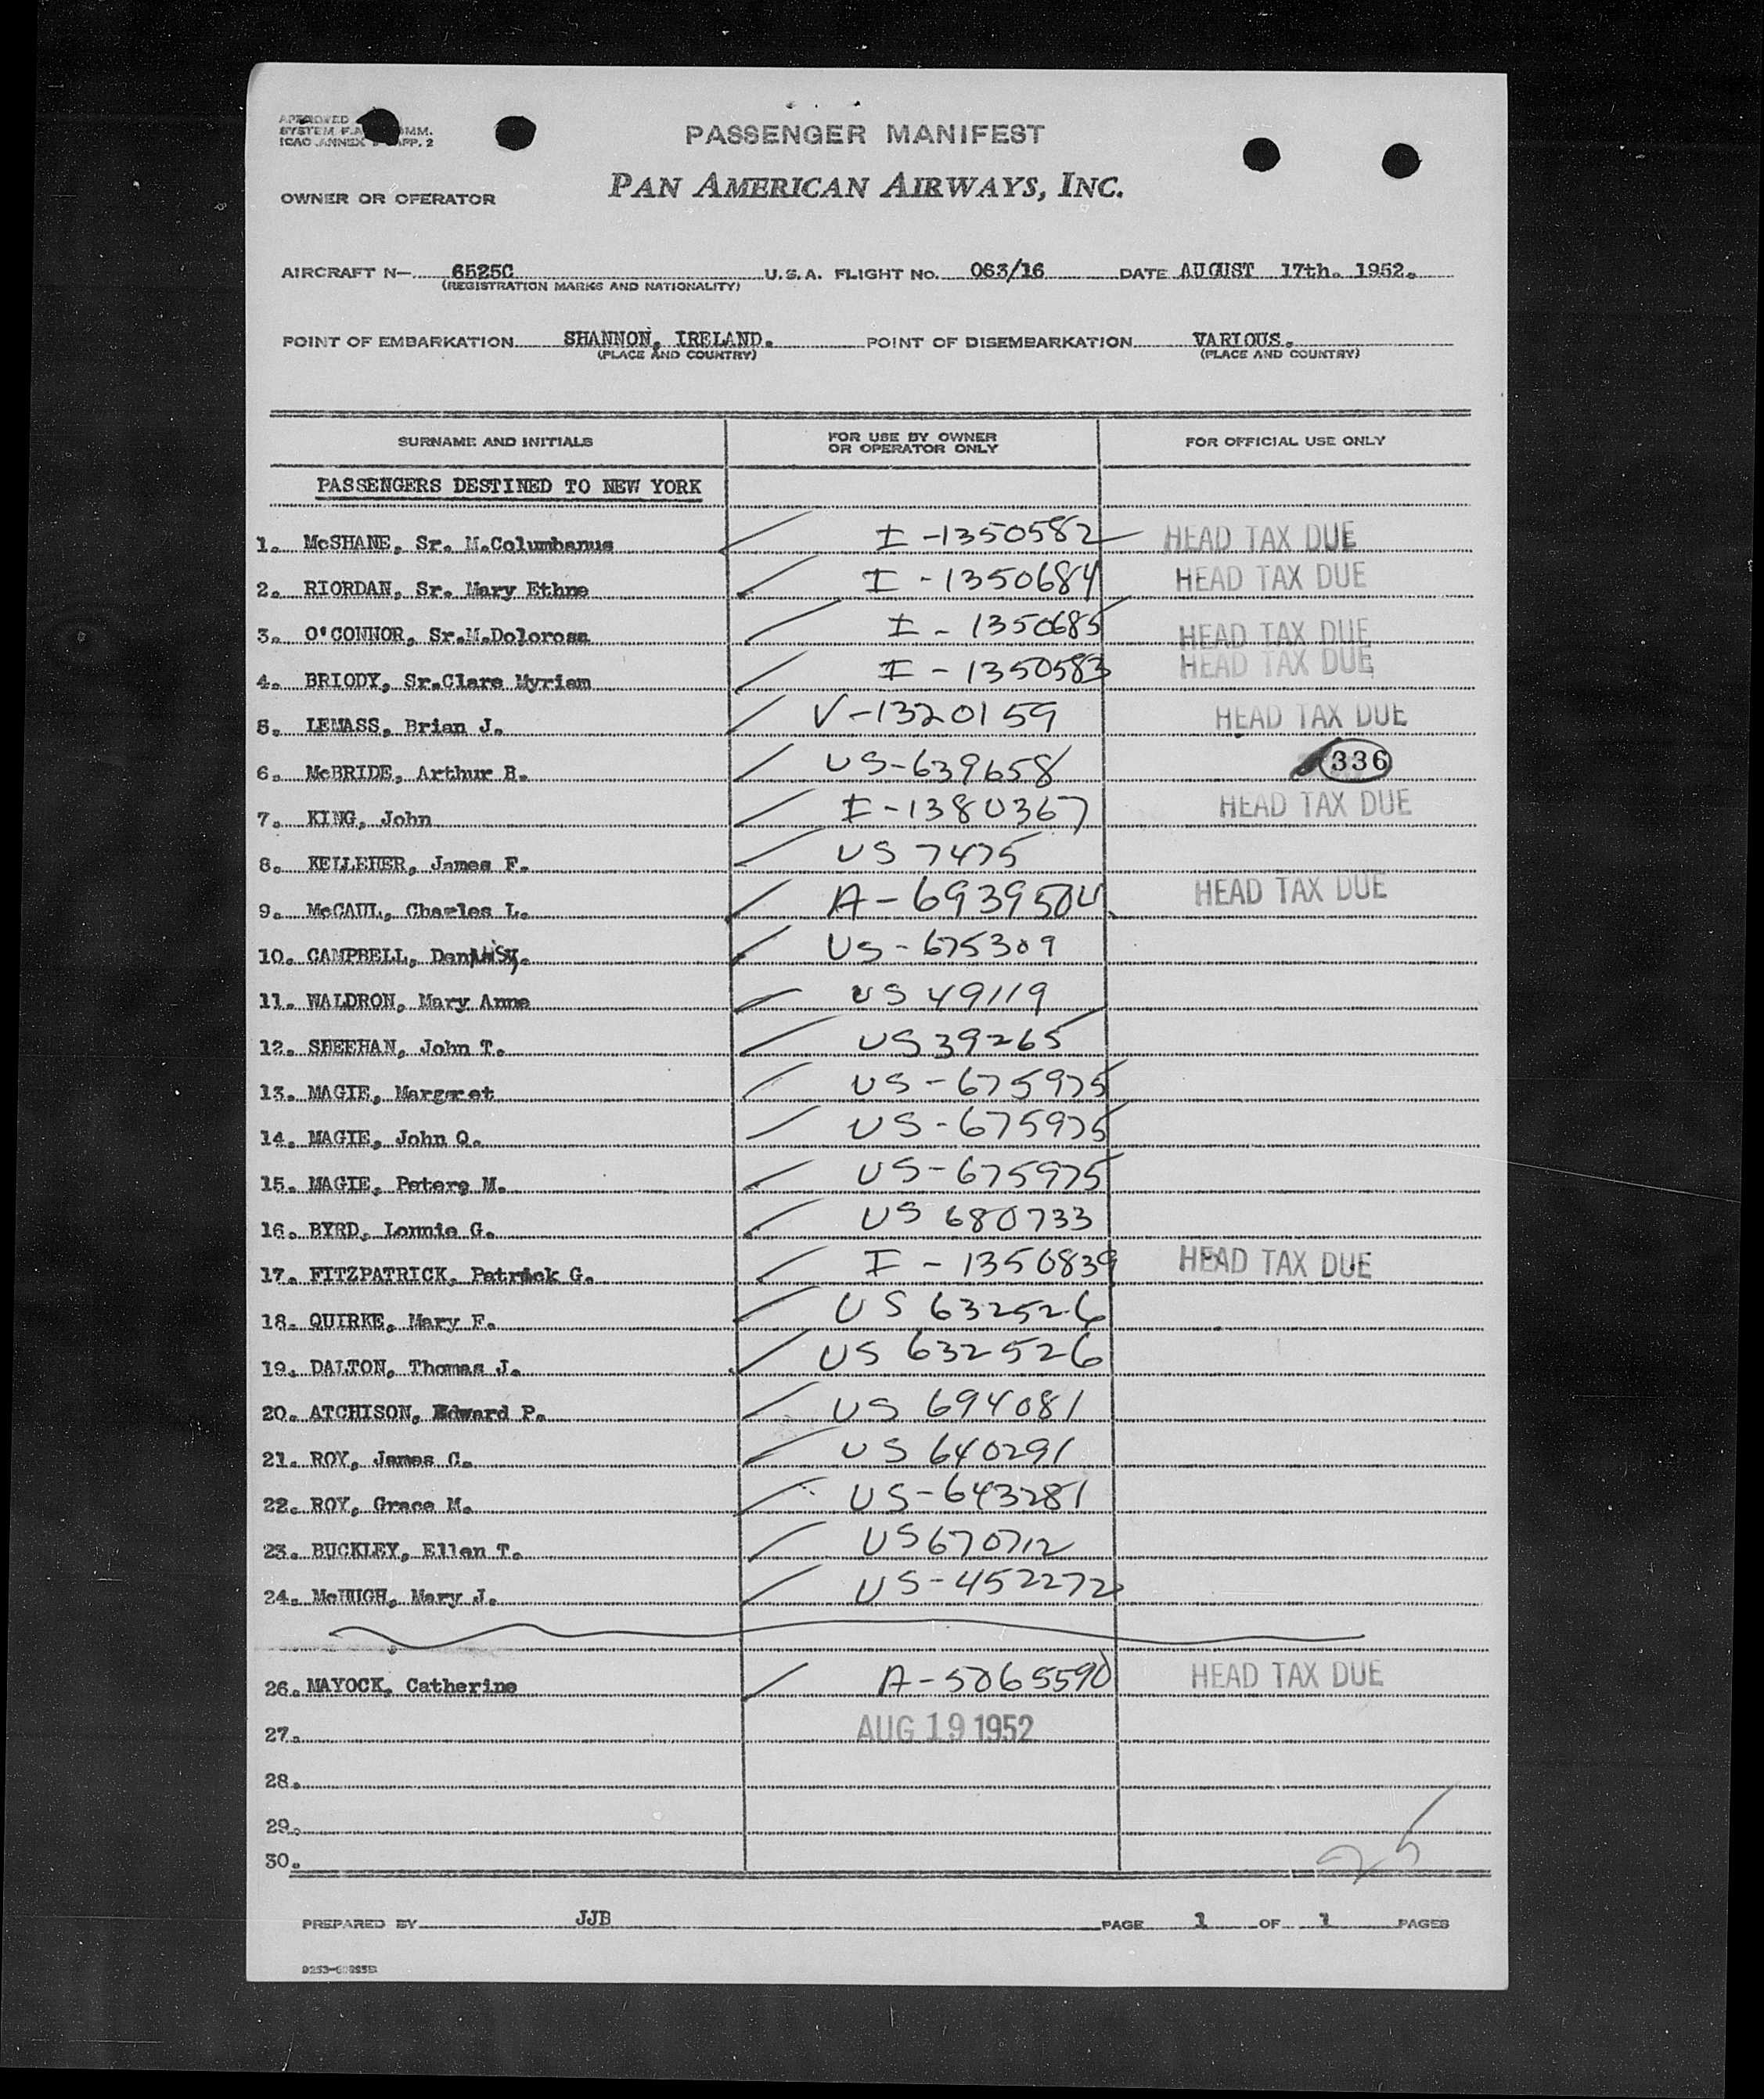 APPROVED
SYSTEM F.A. COMM.
ICAO ANNEX 9 APP. 2
PASSENGER MANIFEST
OWNER OR OPERATOR PAN AMERICAN AIRWAYS, INC.
AIRCRAFT N— 6525C U.S.A. FLIGHT NO. 063/16 DATE AUGUST 17th. 1952.
(REGISTRATION MARKS AND NATIONALITY)
POINT OF EMBARKATION SHANNON, IRELAND. POINT OF DISEMBARKATION VARIOUS.
(PLACE AND COUNTRY) (PLACE AND COUNTRY)
SURNAME AND INITIALS FOR USE BY OWNER OR OPERATOR ONLY FOR OFFICIAL USE ONLY
PASSENGERS DESTINED TO NEW YORK
1. McSHANE, Sr. M.Columbanus I-1350582 HEAD TAX DUE
2. RIORDAN, Sr. Mary Ethne I-1350684 HEAD TAX DUE
3. O'CONNOR, Sr.M.Dolorosa I-1350685 HEAD TAX DUE
4. BRIODY, Sr.Clare Myriam I-1350583 HEAD TAX DUE
5. LEMASS, Brian J. V-1320159 HEAD TAX DUE
6. McBRIDE, Arthur B. US-639658 336
7. KING, John I-1380367 HEAD TAX DUE
8. KELLEHER, James F. US 7475
9. McCAUL, Charles L. A-6939504 HEAD TAX DUE
10. CAMPBELL, US-675309
11. WALDRON, Mary Anne US 49119
12. SHEEHAN, John T. US 39265
13. MAGIE, Margaret US-675975
14. MAGIE, John Q. US-675975
15. MAGIE, Peters M. US-675975
16. BYRD, Lonnie G. US 680733
17. FITZPATRICK, Patrick G. I-1350839 HEAD TAX DUE
18. QUIRKE, Mary F. US 632526
19. DALTON, Thomas J. US 632526
20. ATCHISON, Edward P. US 694081
21. ROY, James C. US 640291
22. ROY, Grace M. US-643281
23. BUCKLEY, Ellen T. US 670712
24. McHUGH, Mary J. US-452272
26. MAYOCK, Catherine A-5065590 HEAD TAX DUE
27. AUG 19 1952
28.
29.
30. 25
PREPARED BY JJB PAGE 1 OF 1 PAGES